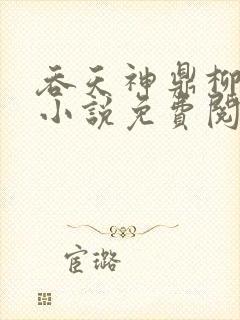 吞天神鼎柳
小說免費閱
宦璐